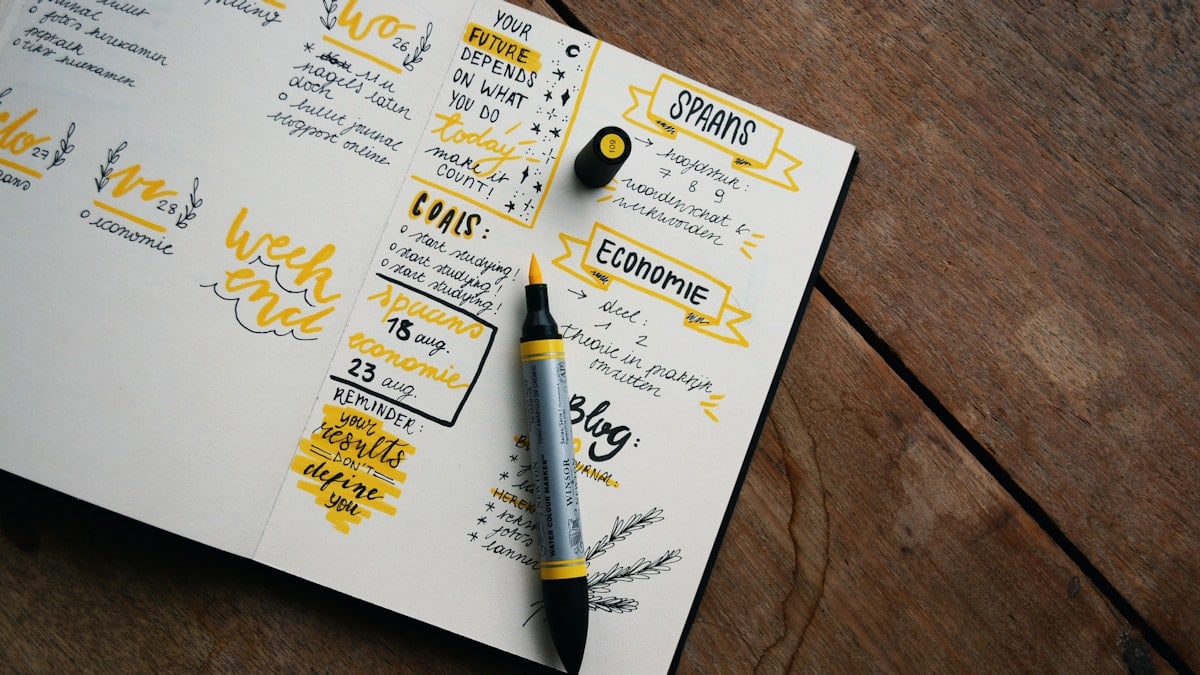 o foto's herexamen
peptalk
o tekst herexamen
Wo
26
* 11u
nagels laten
doen
o bullet journal
blogpost online
27
vr
28
o economie
Week
end
YOUR
FUTURE
DEPENDS
ON WHAT
YOU DO
today
make it
COUNT!
GOALS:
o start studying!
o start studying!
o start studying!
spaans
18 aug.
economie
23 aug.
REMINDER:
your
results
DON'T
define
you
SPAANS
→ hoofdstuk:
7 8 9
woordenschat &
werkwoorden
ECONOMIE
→ deel:
1 2
theorie in praktijk
omzetten
Blog:
* foto's
109
WINSOR
WATER COLOUR MARKER